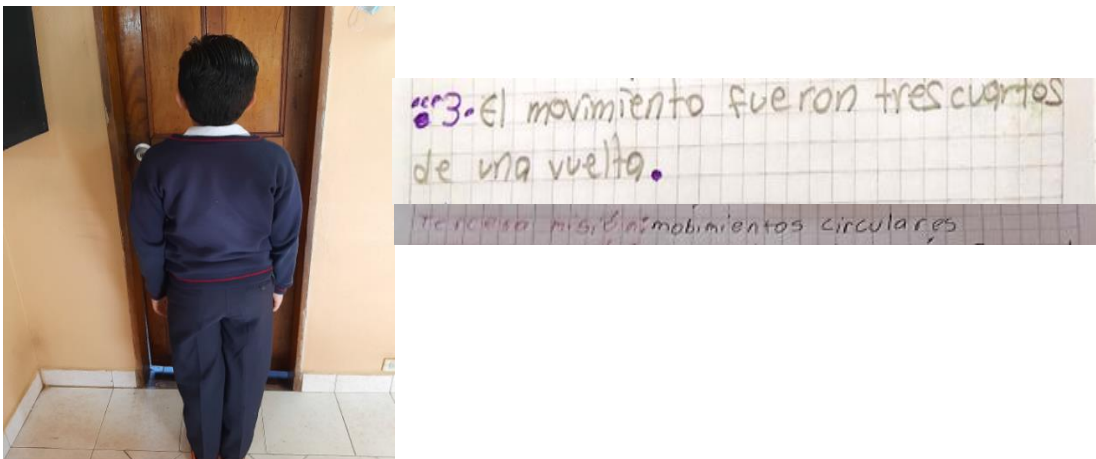 3. El movimiento fueron trescuartos
de una vuelta.
Tercera misión: mobimientos circulares